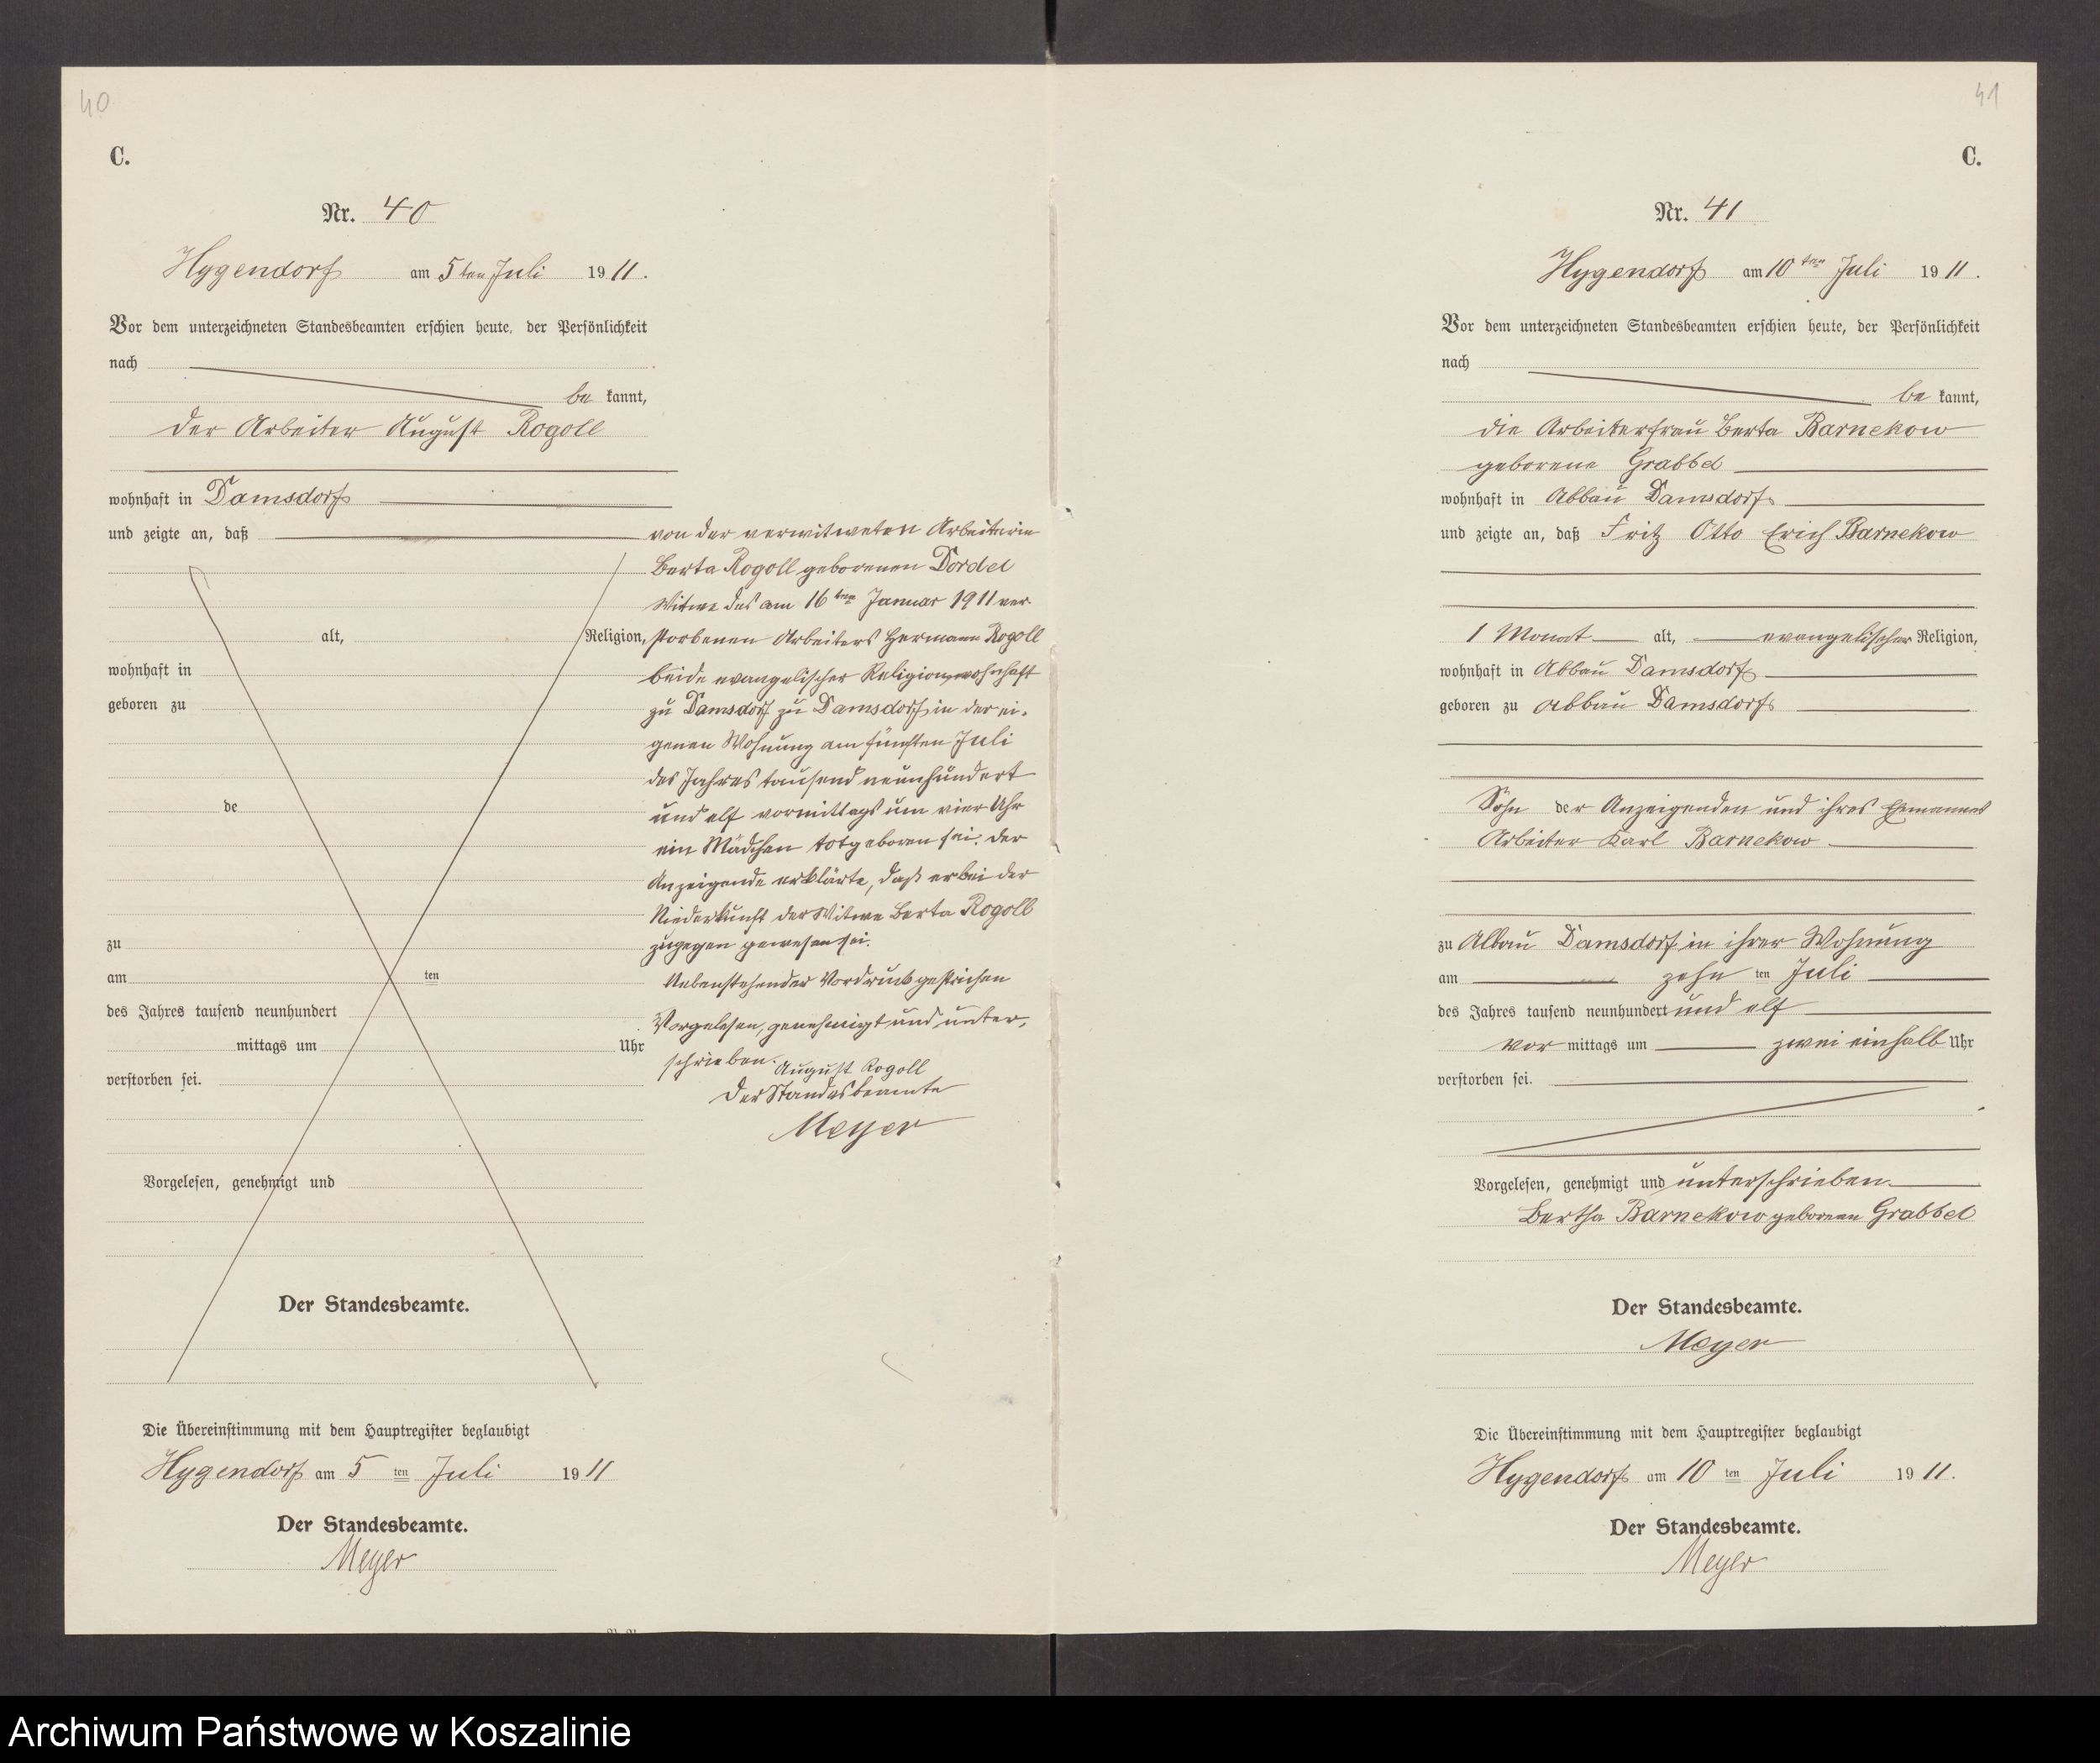 40
C.
Nr. 40
Hygendorf am 5ten Juli 1911.
Vor dem unterzeichneten Standesbeamten erschien heute, der Persönlichkeit
nach
be kannt,
der Arbeiter August Rogoll
wohnhaft in Damsdorf
und zeigte an, daß
alt, Religion,
wohnhaft in
geboren zu
de
zu
am ten
des Jahres tausend neunhundert
mittags um Uhr
verstorben sei.
Vorgelesen, genehmigt und
Der Standesbeamte.
von der verwitweten Arbeiterin
Berta Rogoll geborenen Dordel
Witwe des am 16ten Januar 1911 ver-
storbenen Arbeiters Hermann Rogoll
beide evangelischer Religion, wohnhaft
zu Damsdorf zu Damsdorf in der ei-
genen Wohnung am fünften Juli
des Jahres tausend neunhundert
und elf vormittags um vier Uhr
ein Mädchen totgeboren sei. Der
Anzeigende erklärte, daß er bei der
Niederkunft der Witwe Berta Rogoll
zugegen gewesen sei.
Nebenstehender Vordruck gestrichen
Vorgelesen, genehmigt und unter-
schrieben. August Rogoll
Der Standesbeamte
Meyer
Die Übereinstimmung mit dem Hauptregister beglaubigt
Hygendorf am 5 ten Juli 1911
Der Standesbeamte.
Meyer
41
C.
Nr. 41
Hygendorf am 10ten Juli 1911.
Vor dem unterzeichneten Standesbeamten erschien heute, der Persönlichkeit
nach
be kannt,
die Arbeiterfrau Berta Barnekow
geborene Grabbel
wohnhaft in Abbau Damsdorf
und zeigte an, daß Fritz Otto Erich Barnekow
1 Monat alt, evangelischer Religion,
wohnhaft in Abbau Damsdorf
geboren zu Abbau Damsdorf
Sohn der Anzeigenden und ihres Ehemannes
Arbeiter Karl Barnekow
zu Abbau Damsdorf in ihrer Wohnung
am zehn ten Juli
des Jahres tausend neunhundert und elf
vor mittags um zwei einhalb Uhr
verstorben sei.
Vorgelesen, genehmigt und unterschrieben.
Bertha Barnekow geborene Grabbel
Der Standesbeamte.
Meyer
Die Übereinstimmung mit dem Hauptregister beglaubigt
Hygendorf am 10 ten Juli 1911.
Der Standesbeamte.
Meyer
Archiwum Państwowe w Koszalinie